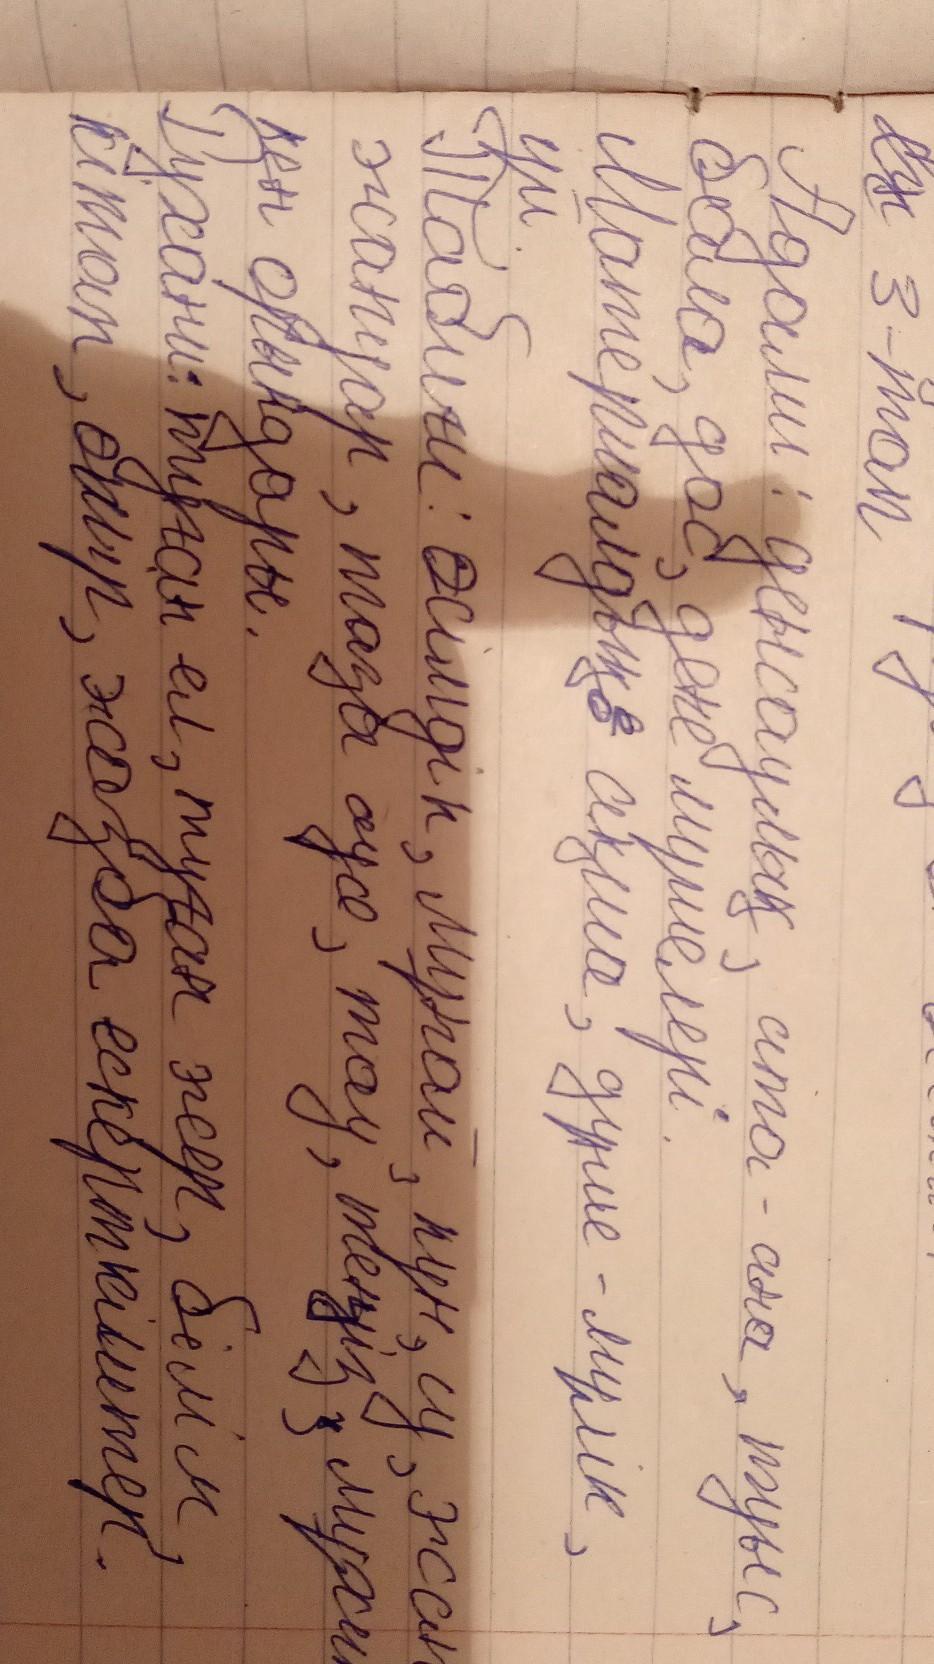 3-топ
Адами: денсаулық, ата-ана, туыс,
бала, дос, дене мүшелері.
Материалдық: ақша, дүние-мүлік,
үй.
Табиғи: өсімдік, Мұнай, күн, су, жан
жануар, таза ауа, тау, теңіз, мұхит
кен орындары.
Рухани: туған ел, туған жер, білім,
кітап, өнер, жазба ескерткіштер.